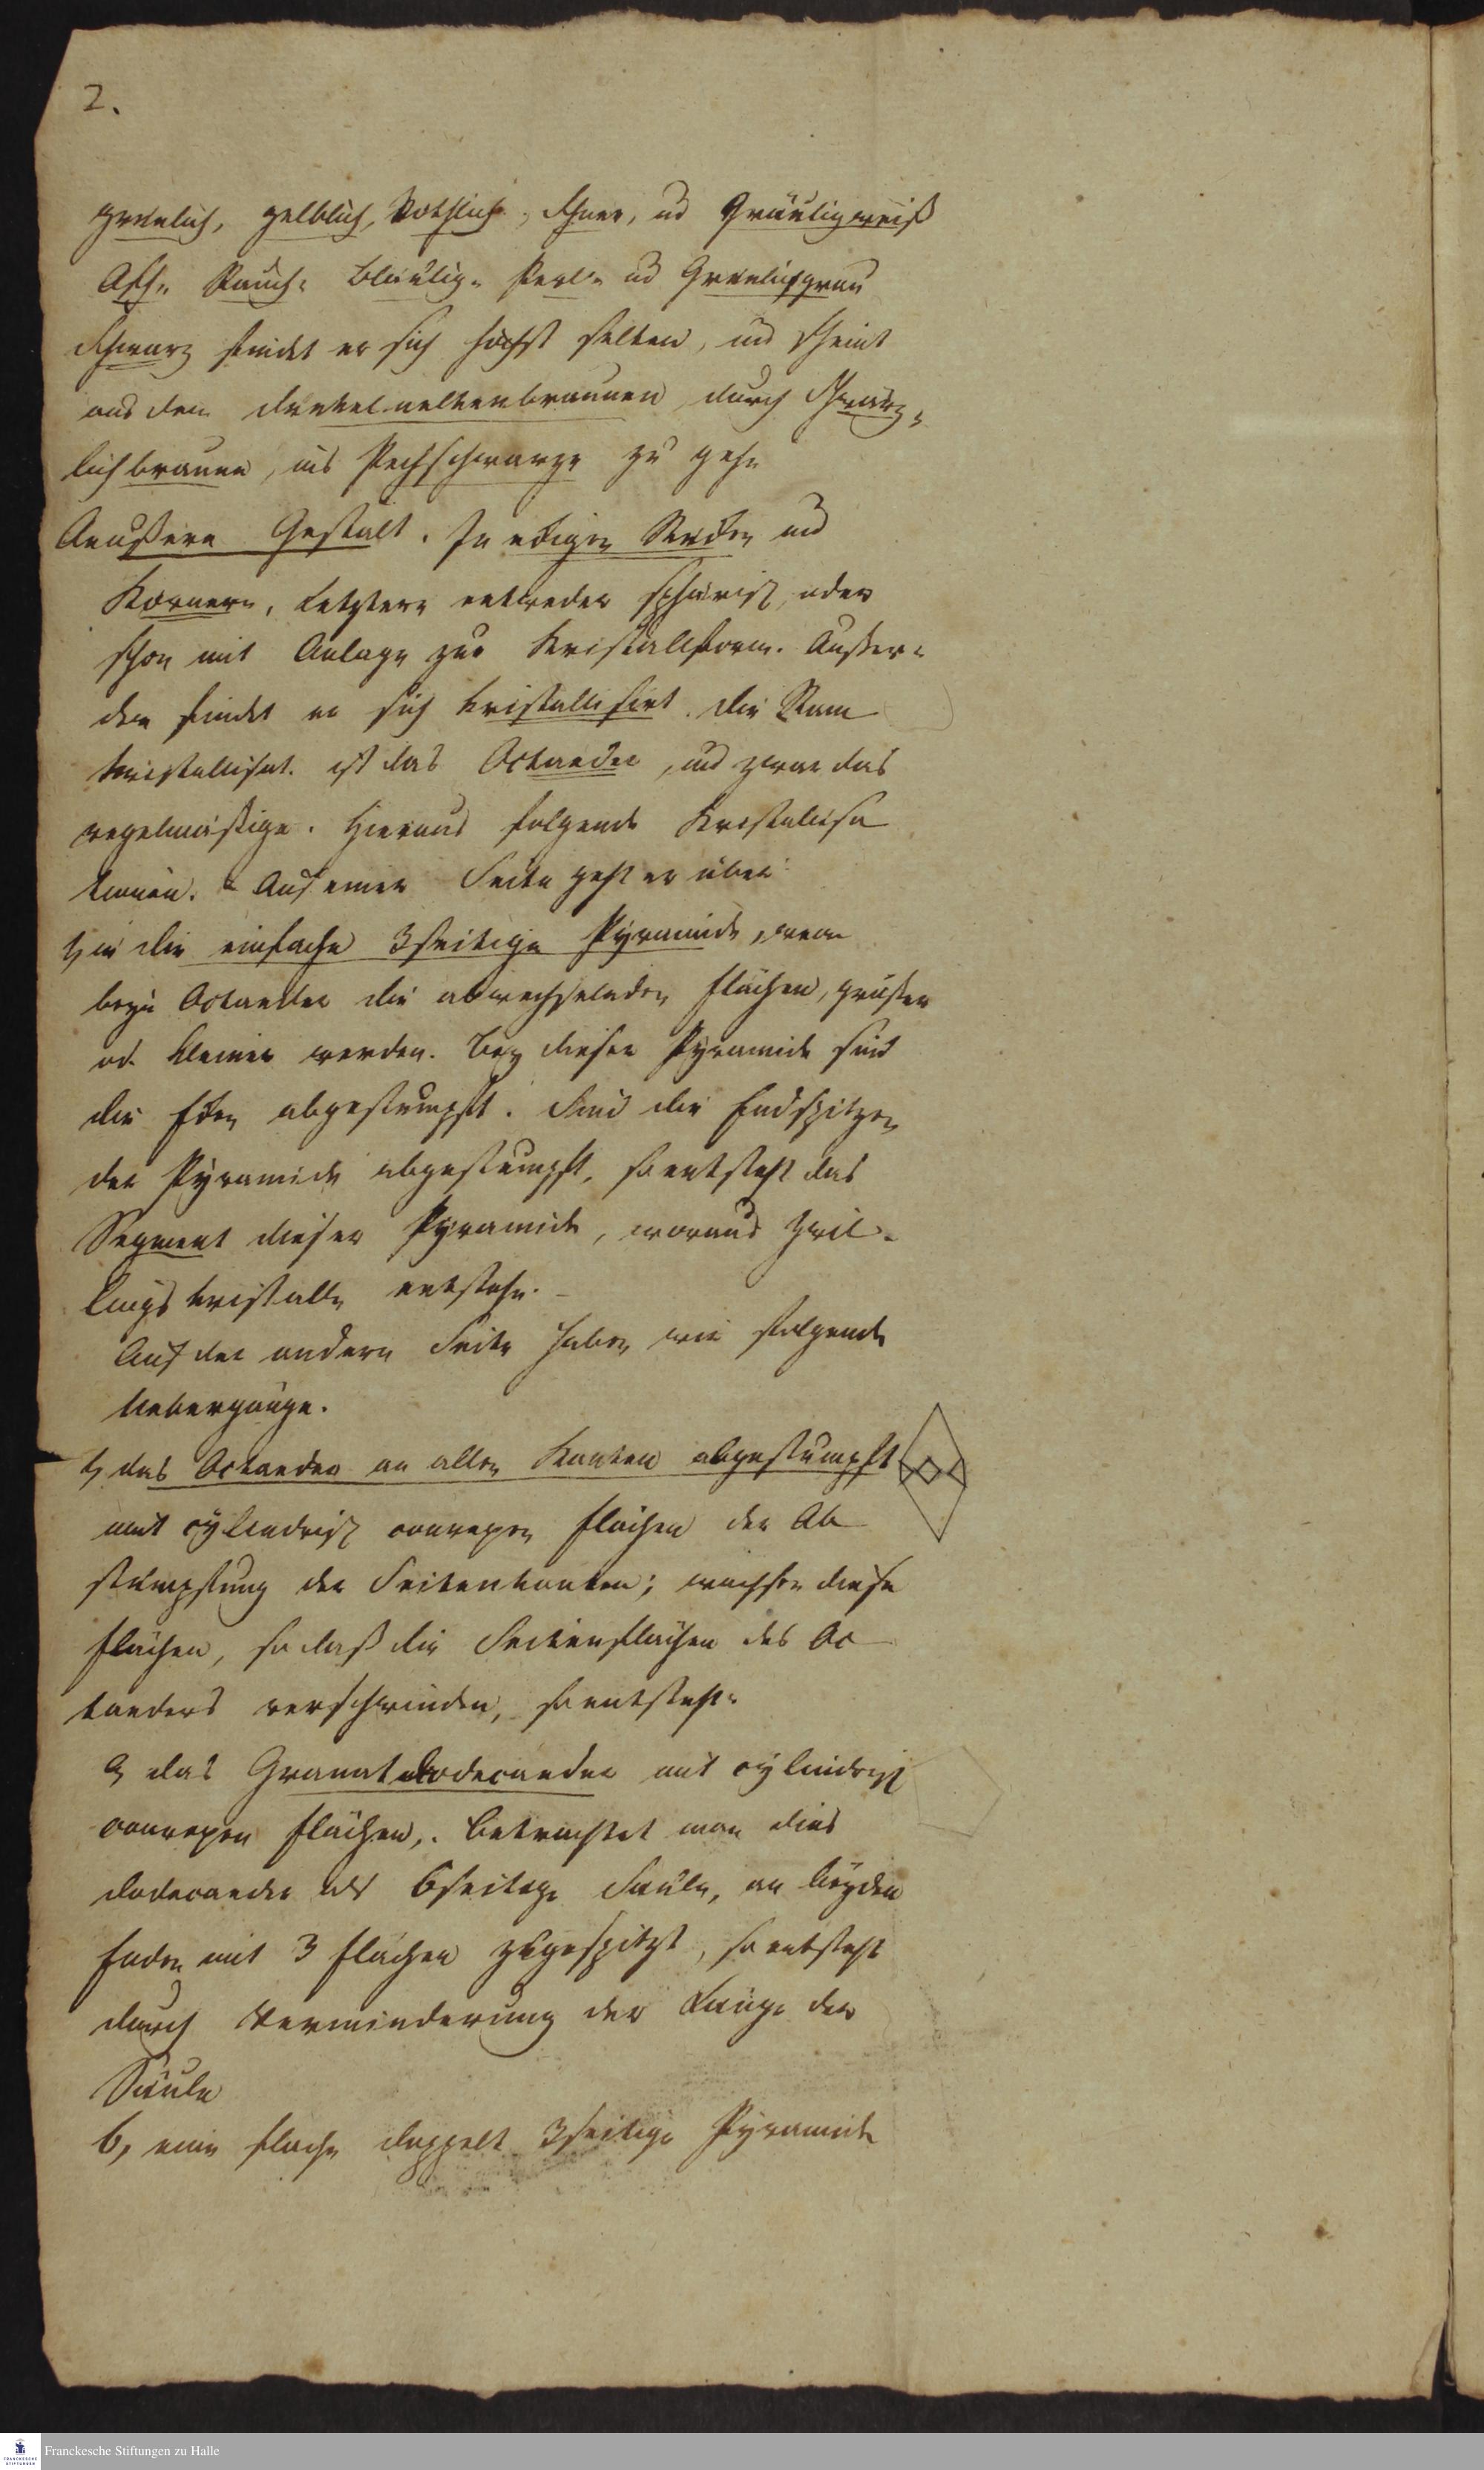 2.
grünlich, gelblich, Rothlich, Schnee, ud Gräuligweiß
Asch- Rauch- Blaulig- Perl- ud Grünlichgrau
Schwarz findet er sich höchst selten, und scheint
aus dem dunkel nelkenbraunen durch Schwärz-
lichbraune, ins Pechschwarze zu gehn
Aeussere Gestalt. In eckigen Stücken und
Körnern, Letztere entweder sphärisch, oder
schon mit Anlage zur Kristallform. Ausser-
dem findet er sich kristallisirt. Die Stam
kristallisat. ist das Octaeder, und zwar das
regelmässige. Hieraus folgende Kristallisa
tionen. Auf einer Seite geht er über
1, in die einfache 3seitige Pyramide, wenn
beym Octaeder die abwechselnden Flächen, grösser
od. kleiner werden. Bey dieser Pyramide sind
die Ecken abgestumpft. Sind die Endspitzen
der Pyramide abgestumpft, so entsteht das
Segment dieser Pyramide, woraus Zwil-
lingskristalle entstehn.
Auf der andern Seite haben wir folgende
Uebergänge.
1, das Octaeder an allen Kanten abgestumpft
mit cylindrisch convexen Flächen der Ab
stumpfung der Seitenkanten; wachsen diese
Flächen, so daß die Seitenflächen des Oc
taeders verschwinden, so entsteht
a, das Granatdodecaeder mit cylindrisch
convexen Flächen,. Betrachtet man dies
Dodecaeder als 6seitige Säule, an beyden
Enden mit 3 Flächen zugespitzt, so entsteht
durch Verminderung der Länge der
Säule
b, eine flache doppelt 3seitige Pyramide
Franckesche Stiftungen zu Halle